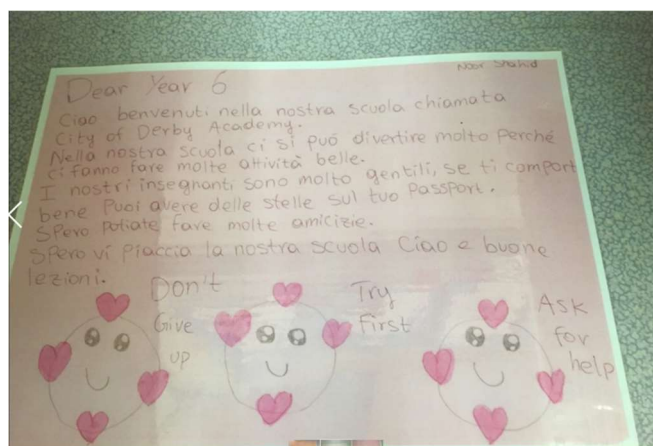 Noor Shahid
Dear Year 6
Ciao benvenuti nella nostra scuola chiamata
City of Derby Academy.
Nella nostra scuola ci si può divertire molto perché
ci fanno fare molte attività belle.
I nostri insegnanti sono molto gentili, se ti comport
bene Puoi avere delle stelle sul tuo Passport.
Spero potiate fare molte amicizie.
Spero vi piaccia la nostra scuola Ciao e buone
lezioni.
Don't
Give
up
Try
First
Ask
for
help